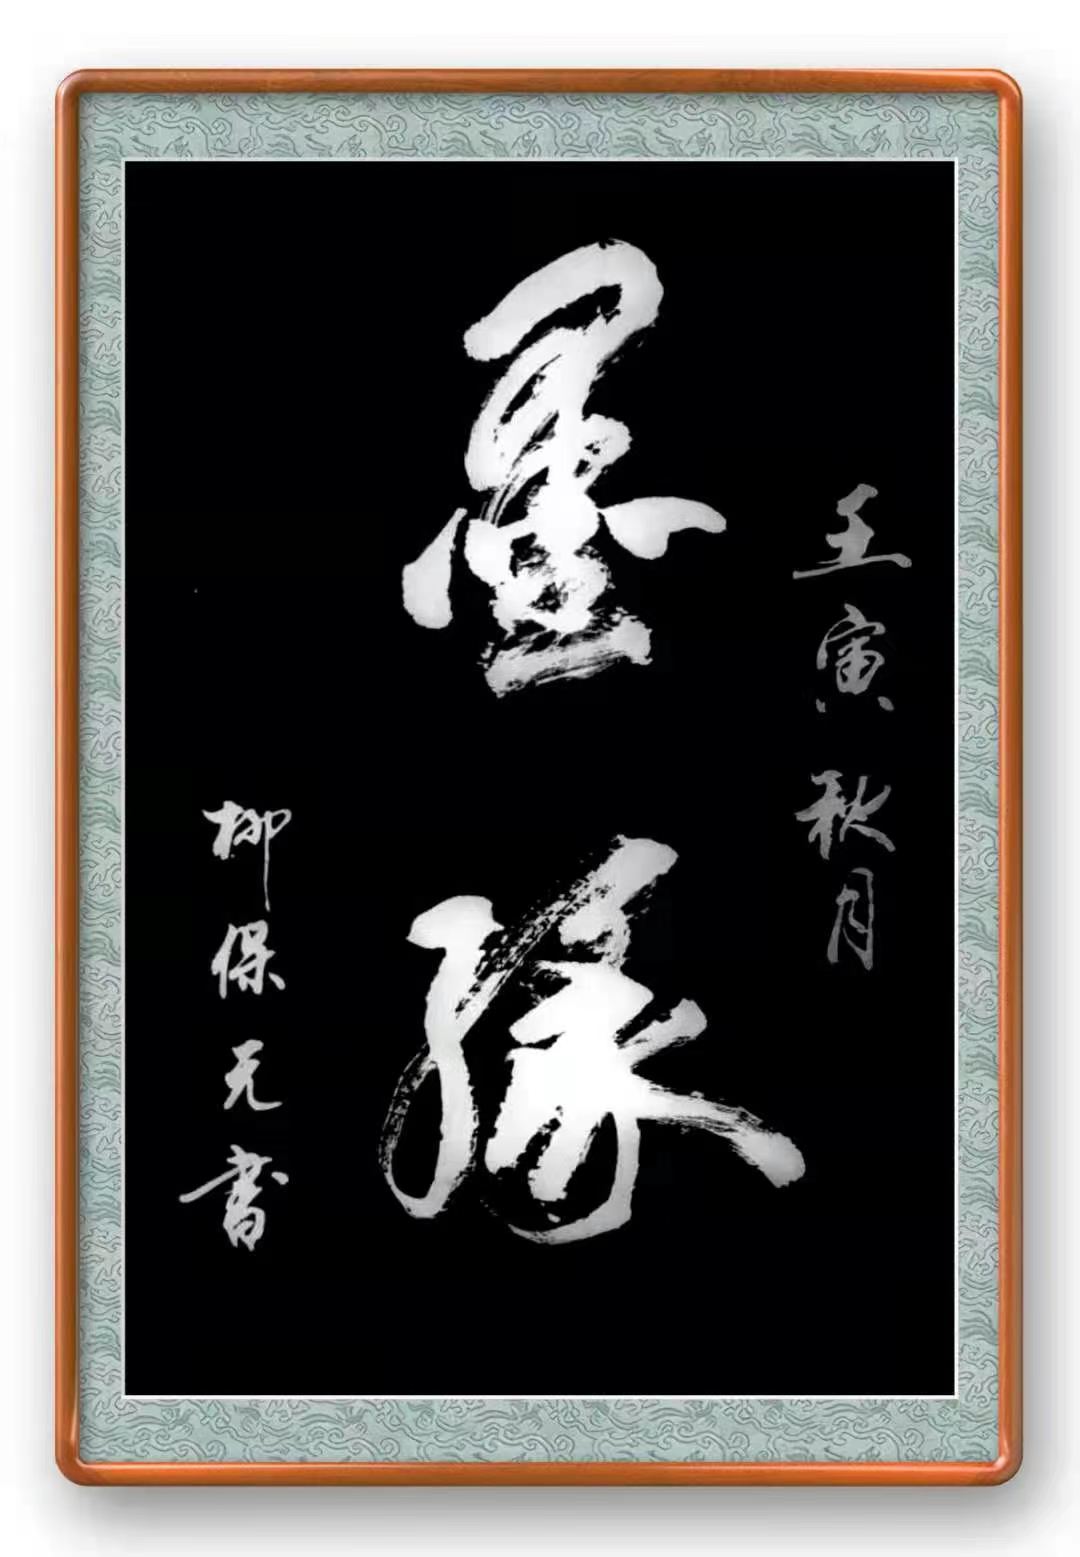 壬寅秋月
墨缘
柳保元書